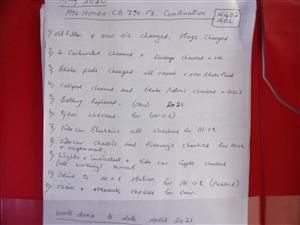 May 2020
1990 Honda CB 750 F2 Combination
1) Oil Filter + new oil changed, Plugs changed
2) 4 Carburetor cleaned +
3) Brake pads changed all round + new Brake Fluid
4) Calipers cleaned and Brake checked + Discs
5) Battery Replaced (new) 2021
6) Tyres checked for (M.O.T)
7) Side car Electrics all checked for M.O.T
8) Side car chassis and checked for
+ alignment
9) Lights + indicators + Side car Lights checked
(all working)
10) Drive to M.O.T Station for M.O.T (Passed)
11) Chain + Sprockets checked for wear
Work done to date April 2021